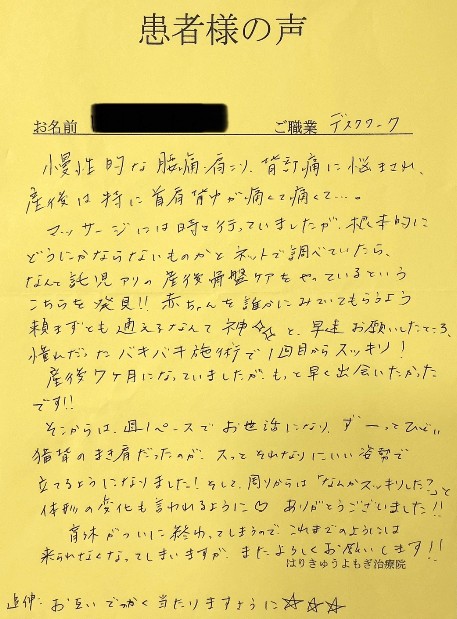 患者様の声
お名前 ご職業 デスクワーク
慢性的な腰痛、肩こり、背部痛に悩まされ、
産後は特に首肩背中が痛くて痛くて…。
マッサージには時々行っていましたが、根本的に
どうにかならないものかとネットで調べていたら、
なんと託児アリの産後骨盤ケアをやっているという
こちらを発見!! 赤ちゃんを誰かにみていてもらうよう
頼まずとも通えるなんて神 と、早速お願いしたところ、
憧れだったバキバキ施術で1回目からスッキリ!
産後7ヶ月になっていましたが、もっと早く出会いたかった
です!!
そこからは、週1ペースでお世話になり、ずーっとひどい
猫背のまき肩だったのが、スッとそれなりにいい姿勢で
立てるようになりました!そして、周りからは「なんかスッキリした?」と
体形の変化も言われるように♡ ありがとうございました!!
育休がついに終わってしまうので、これまでのようには
来られなくなってしまいますが、またよろしくお願いします!!
はりきゅうよもぎ治療院
追伸:お互いでっかく当たりますように☆☆☆